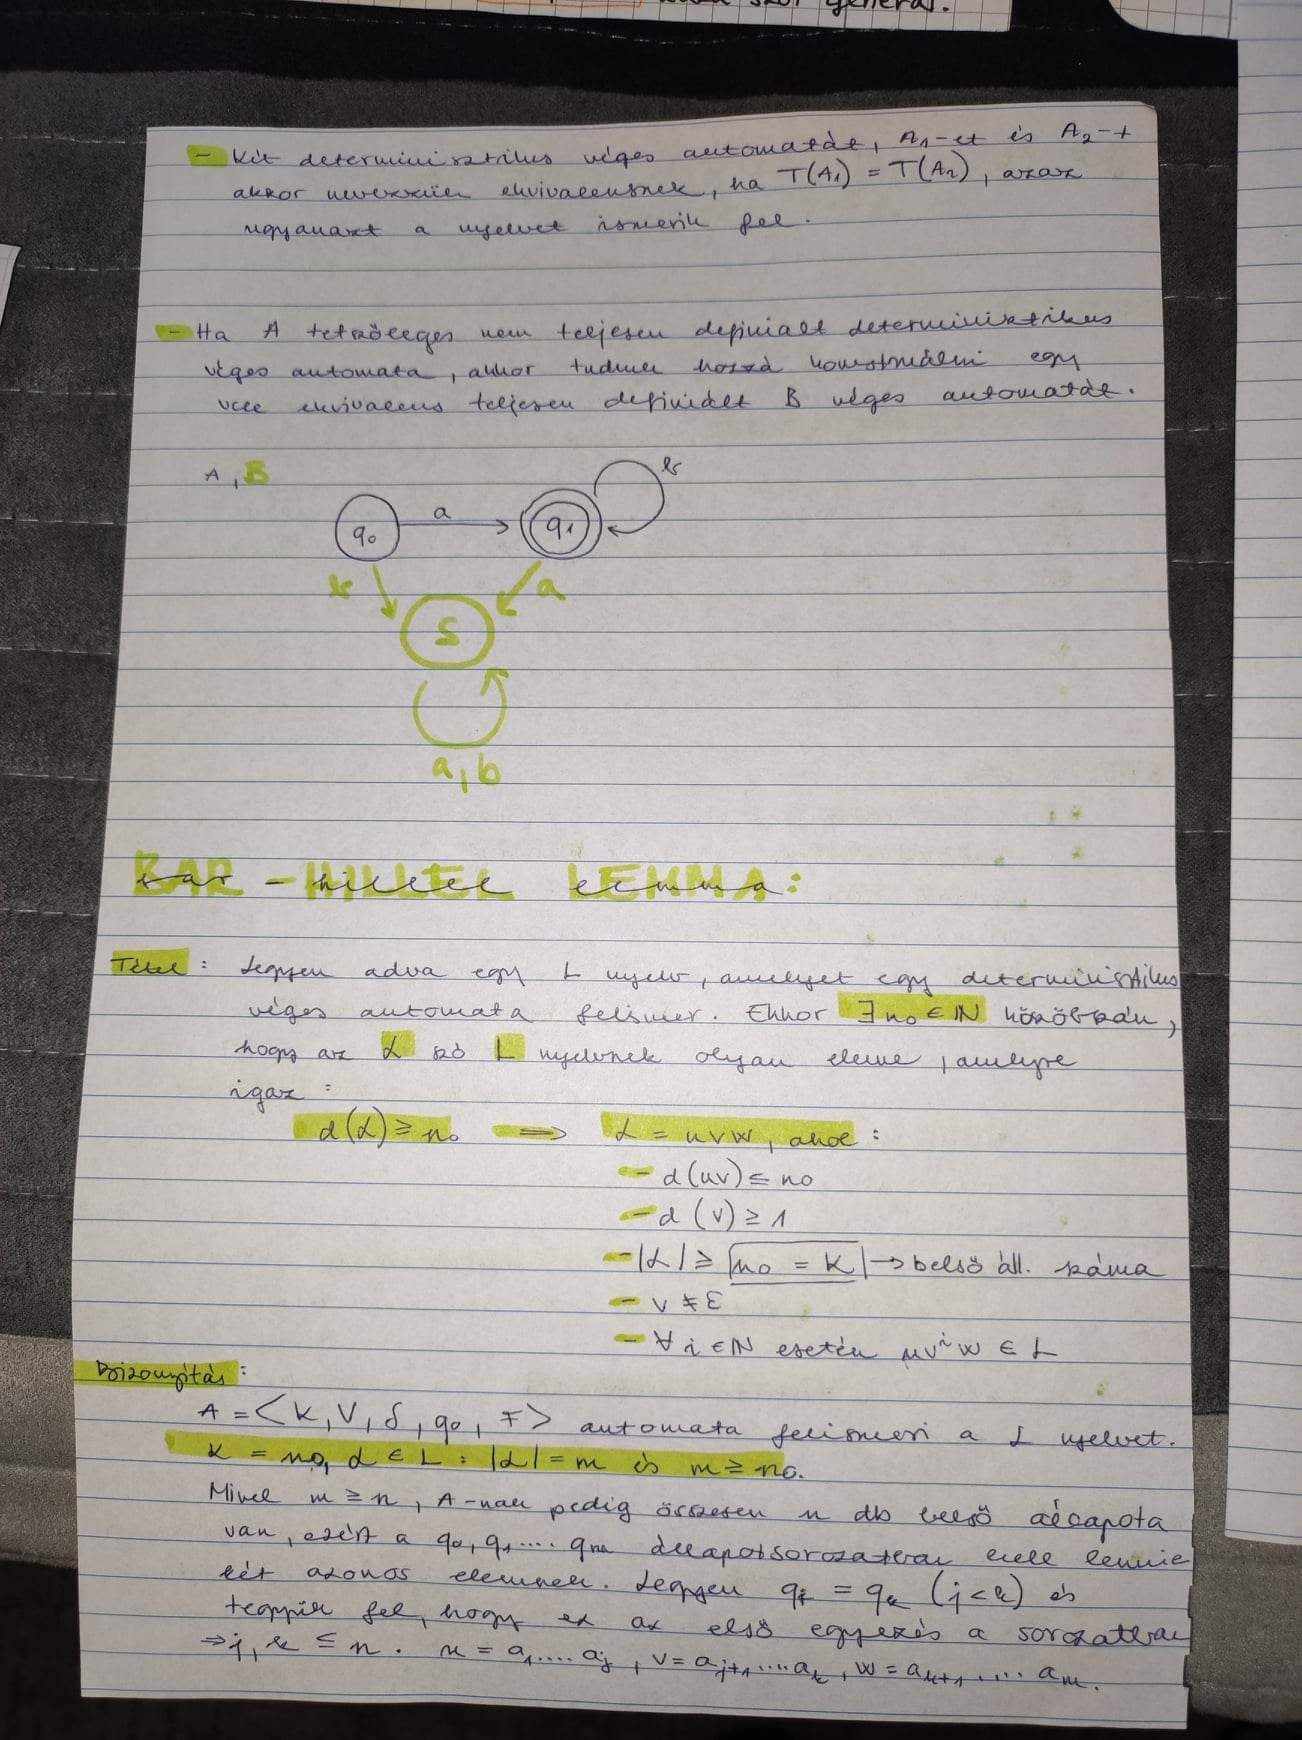 szót generál.
- Két determinisztikus véges automatát, A₁-et és A₂-t
akkor nevezzük ekvivalensnek, ha T(A₁) = T(A₂), azaz
ugyanazt a nyelvet ismerik fel.
- Ha A tetszőleges nem teljesen definiált determinisztikus
véges automata, akkor tudunk hozzá konstruálni egy
vele ekvivalens teljesen definiált B véges automatát.
A, B
b
a
q₀
q₁
b
a
S
a, b
BAR-HILLEL LEMMA:
Tétel: Legyen adva egy L nyelv, amelyet egy determinisztikus
véges automata felismer. Ekkor ∃ n₀ ∈ ℕ küszöbszám,
hogy az α szó L nyelvnek olyan eleme, amelyre
igaz:
d(α) ≥ n₀ ⇒ α = uvw, ahol:
- d(uv) ≤ n₀
- d(v) ≥ 1
- |α| ≥ n₀ = K → belső áll. száma
- v ≠ ε
- ∀ i ∈ ℕ esetén uvⁱw ∈ L
Bizonyítás:
A = <K, V, δ, q₀, F> automata felismeri a L nyelvet.
K = n₀, α ∈ L : |α| = m és m ≥ n₀.
Mivel m ≥ n, A-nak pedig összesen n db belső állapota
van, ezért a q₀, q₁.... qₘ állapotsorozatban kell lennie
két azonos elemnek. Legyen qⱼ = qₖ (j<k) és
tegyük fel, hogy ez az első egyezés a sorozatban
⇒ j, k ≤ n. u = a₁.... aⱼ, v = aⱼ₊₁....aₖ, w = aₖ₊₁.... aₘ.